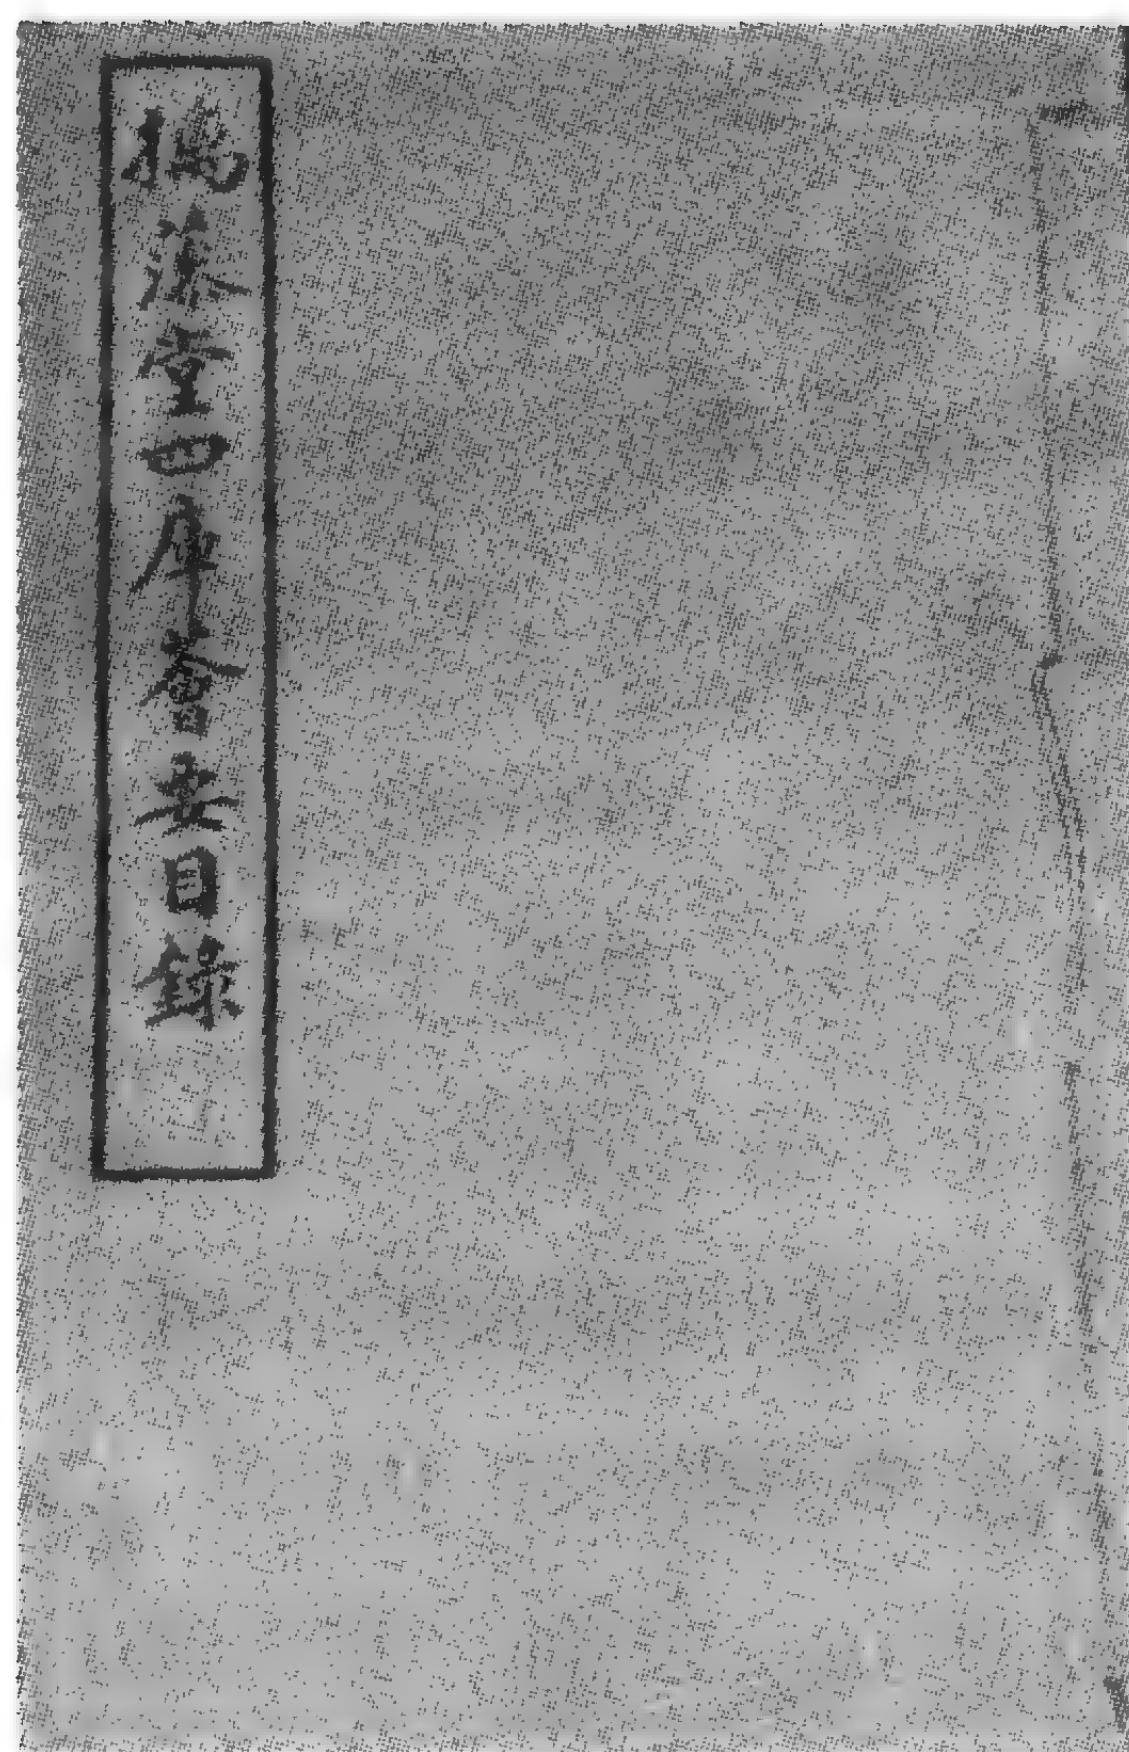 摛藻堂四庫薈要目錄